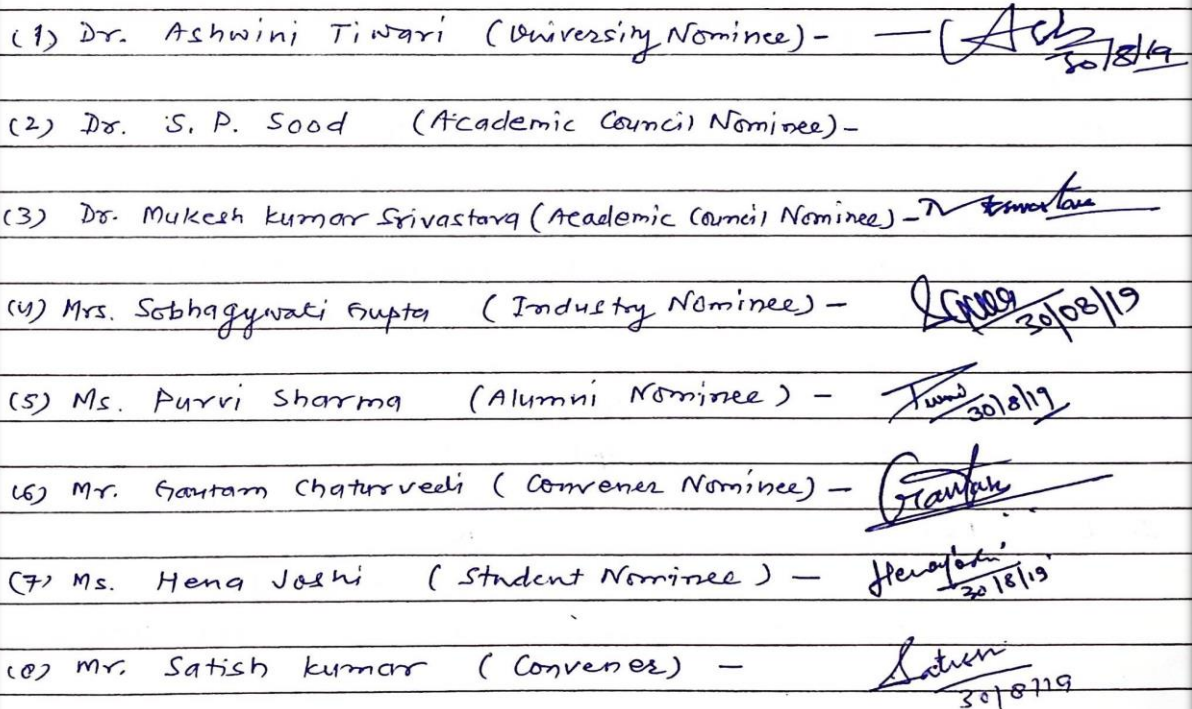 (1) Dr. Ashwini Tiwari (University Nominee) - 30/8/19
(2) Dr. S. P. Sood (Academic Council Nominee) -
(3) Dr. Mukesh Kumar Srivastava (Academic Council Nominee) -
(4) Mrs. Sobhagywati Gupta (Industry Nominee) - 30/08/19
(5) Ms. Purvi Sharma (Alumni Nominee) - 30/8/19
(6) Mr. Gautam Chaturvedi (Convener Nominee) - Gautam
(7) Ms. Hena Joshi (Student Nominee) - Henajoshi 30/8/19
(8) Mr. Satish Kumar (Convener) - Satish 30/8/19